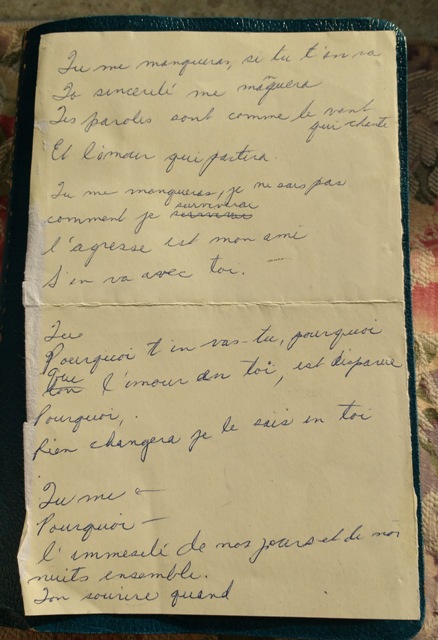 Tu me manqueras, si tu t'en va
Ta sincerité me manquera
Tes paroles sont comme le vent
qui chante
Et l'amour qui partira.
Tu me manqueras, je ne sais pas
comment je survivrai
l'agresse est mon ami
S'en va avec toi.
Tu
Pourquoi t'in vas-tu, pourquoi
Que l'amour en toi, est disparue
Pourquoi,
Rien changera je le sais en toi
Tu me
Pourquoi —
l'immesité de nos jours et de nos
nuits ensemble.
Ton sourire quand